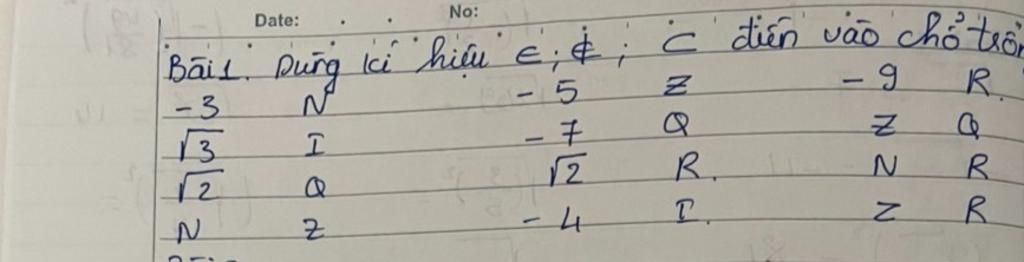 Date: . . No:
Bài 1. Dùng kí hiệu ∈; ∉; ⊂ điền vào chỗ trốn
-3 N -5 Z -9 R.
√3 I -7 Q Z Q
√2 Q √2 R. N R
N Z -4 I. Z R